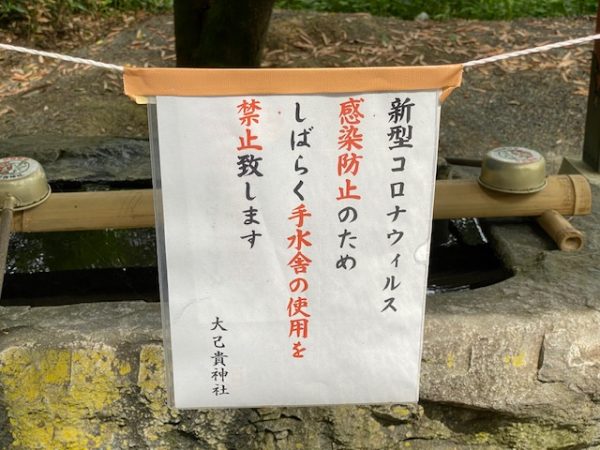 新型コロナウィルス
感染防止のため
しばらく手水舎の使用を
禁止致します
大己貴神社